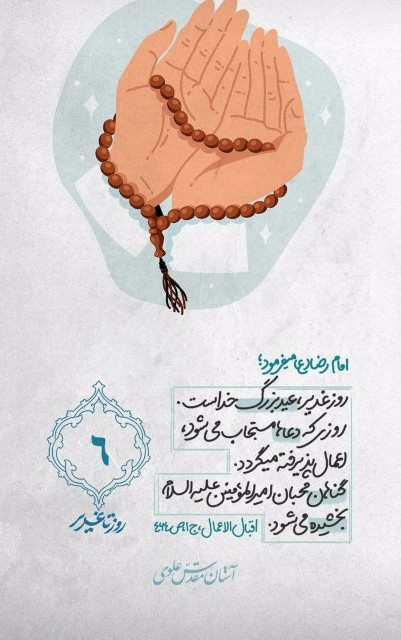 امام رضا (ع) میفرمود؛
روز غدیر، عید بزرگ خداست.
روزی که دعاها مستجاب می‌شود،
اعمال پذیرفته میگردد.
گناهان محبان امیرالمؤمنین علیه السلام
بخشیده می‌شود. اقبال الاعمال، ج۱، ص
۶
روز تا غدیر
آستان مقدس علوی